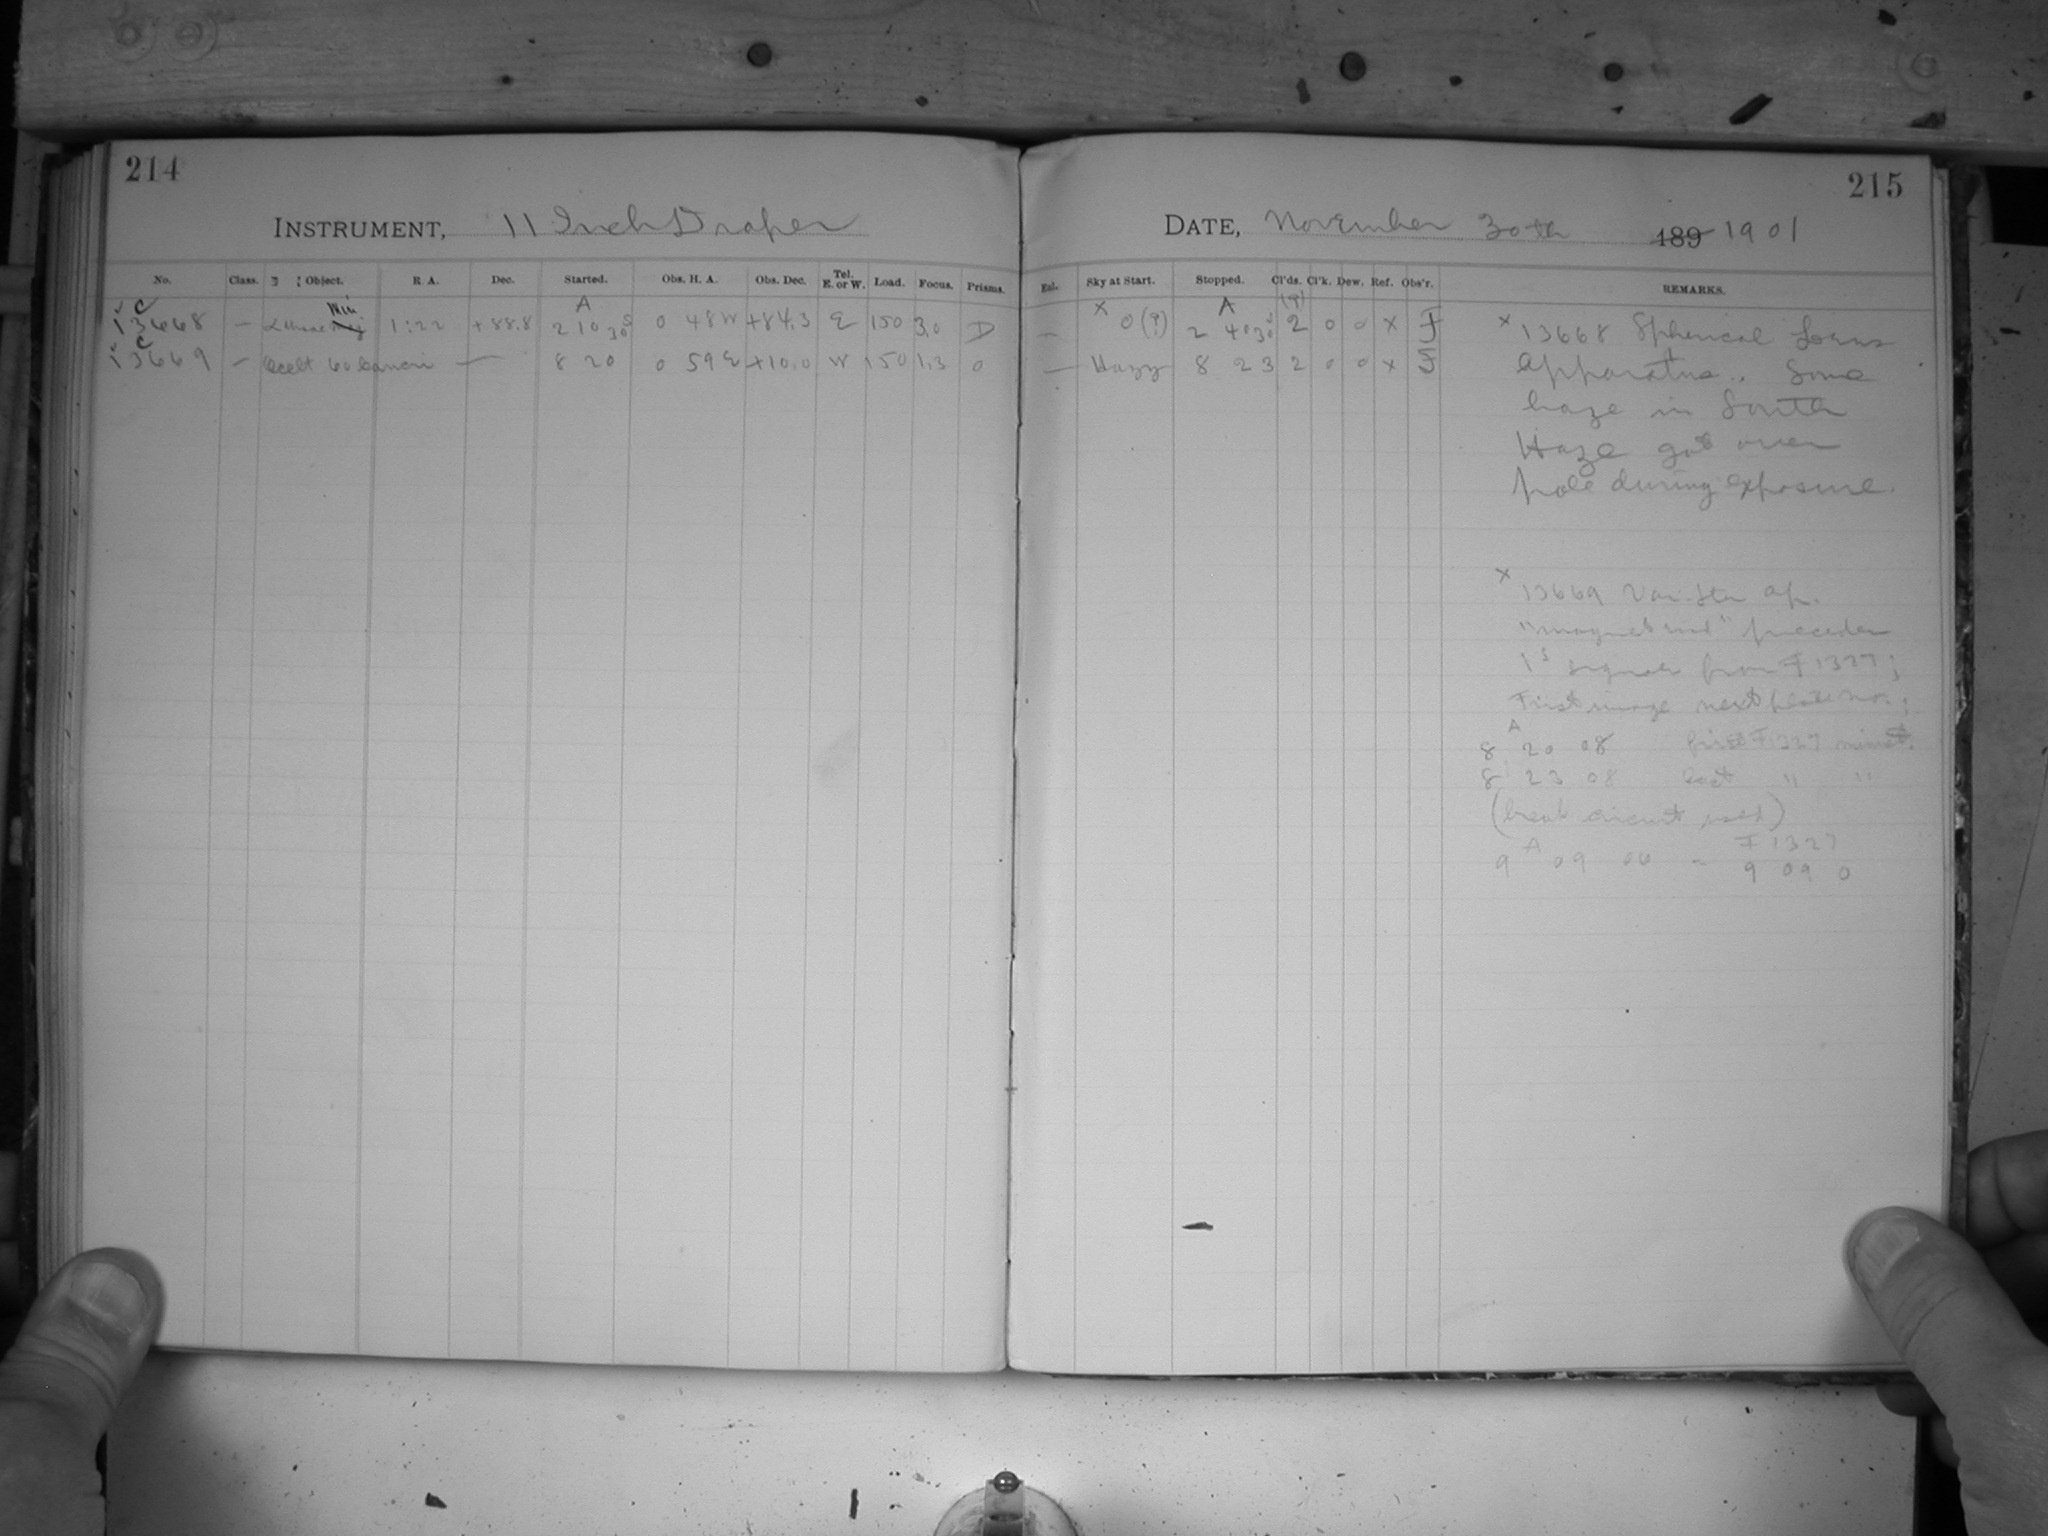 214
INSTRUMENT, 11 Inch Draper
No. Class. Object. R. A. Dec. Started. Obs. H. A. Obs. Dec. Tel. E. or W. Load. Focus. Prisms.
13668 — α Ursae Min 1:22 +88.8 A 2 10 30s 0 48 W +84.3 E 150 3.0 D
13669 — Occult 60 Cancri — 8 20 0 59 E +10.0 W 150 1.3 0
215
DATE, November 30th 189 1901
Enl. Sky at Start. Stopped. Cl'ds. Cl'k. Dew. Ref. Obs'r. REMARKS.
— x 0(?) A 2 40 30s (?) 2 0 0 x F
— Hazy 8 23 2 0 0 x F
x 13668 Spherical
Apparatus. Some
haze in South
Haze got over
pole during exposure.
x 13669 Var. Star Ap.
precedes
1s signal from F 1327;
First image next plate No.;
8 A 20 08 first F 1327 minute.
8 23 08 last " "
(break circuit used)
F 1327
9 A 09 06 - 9 09 0